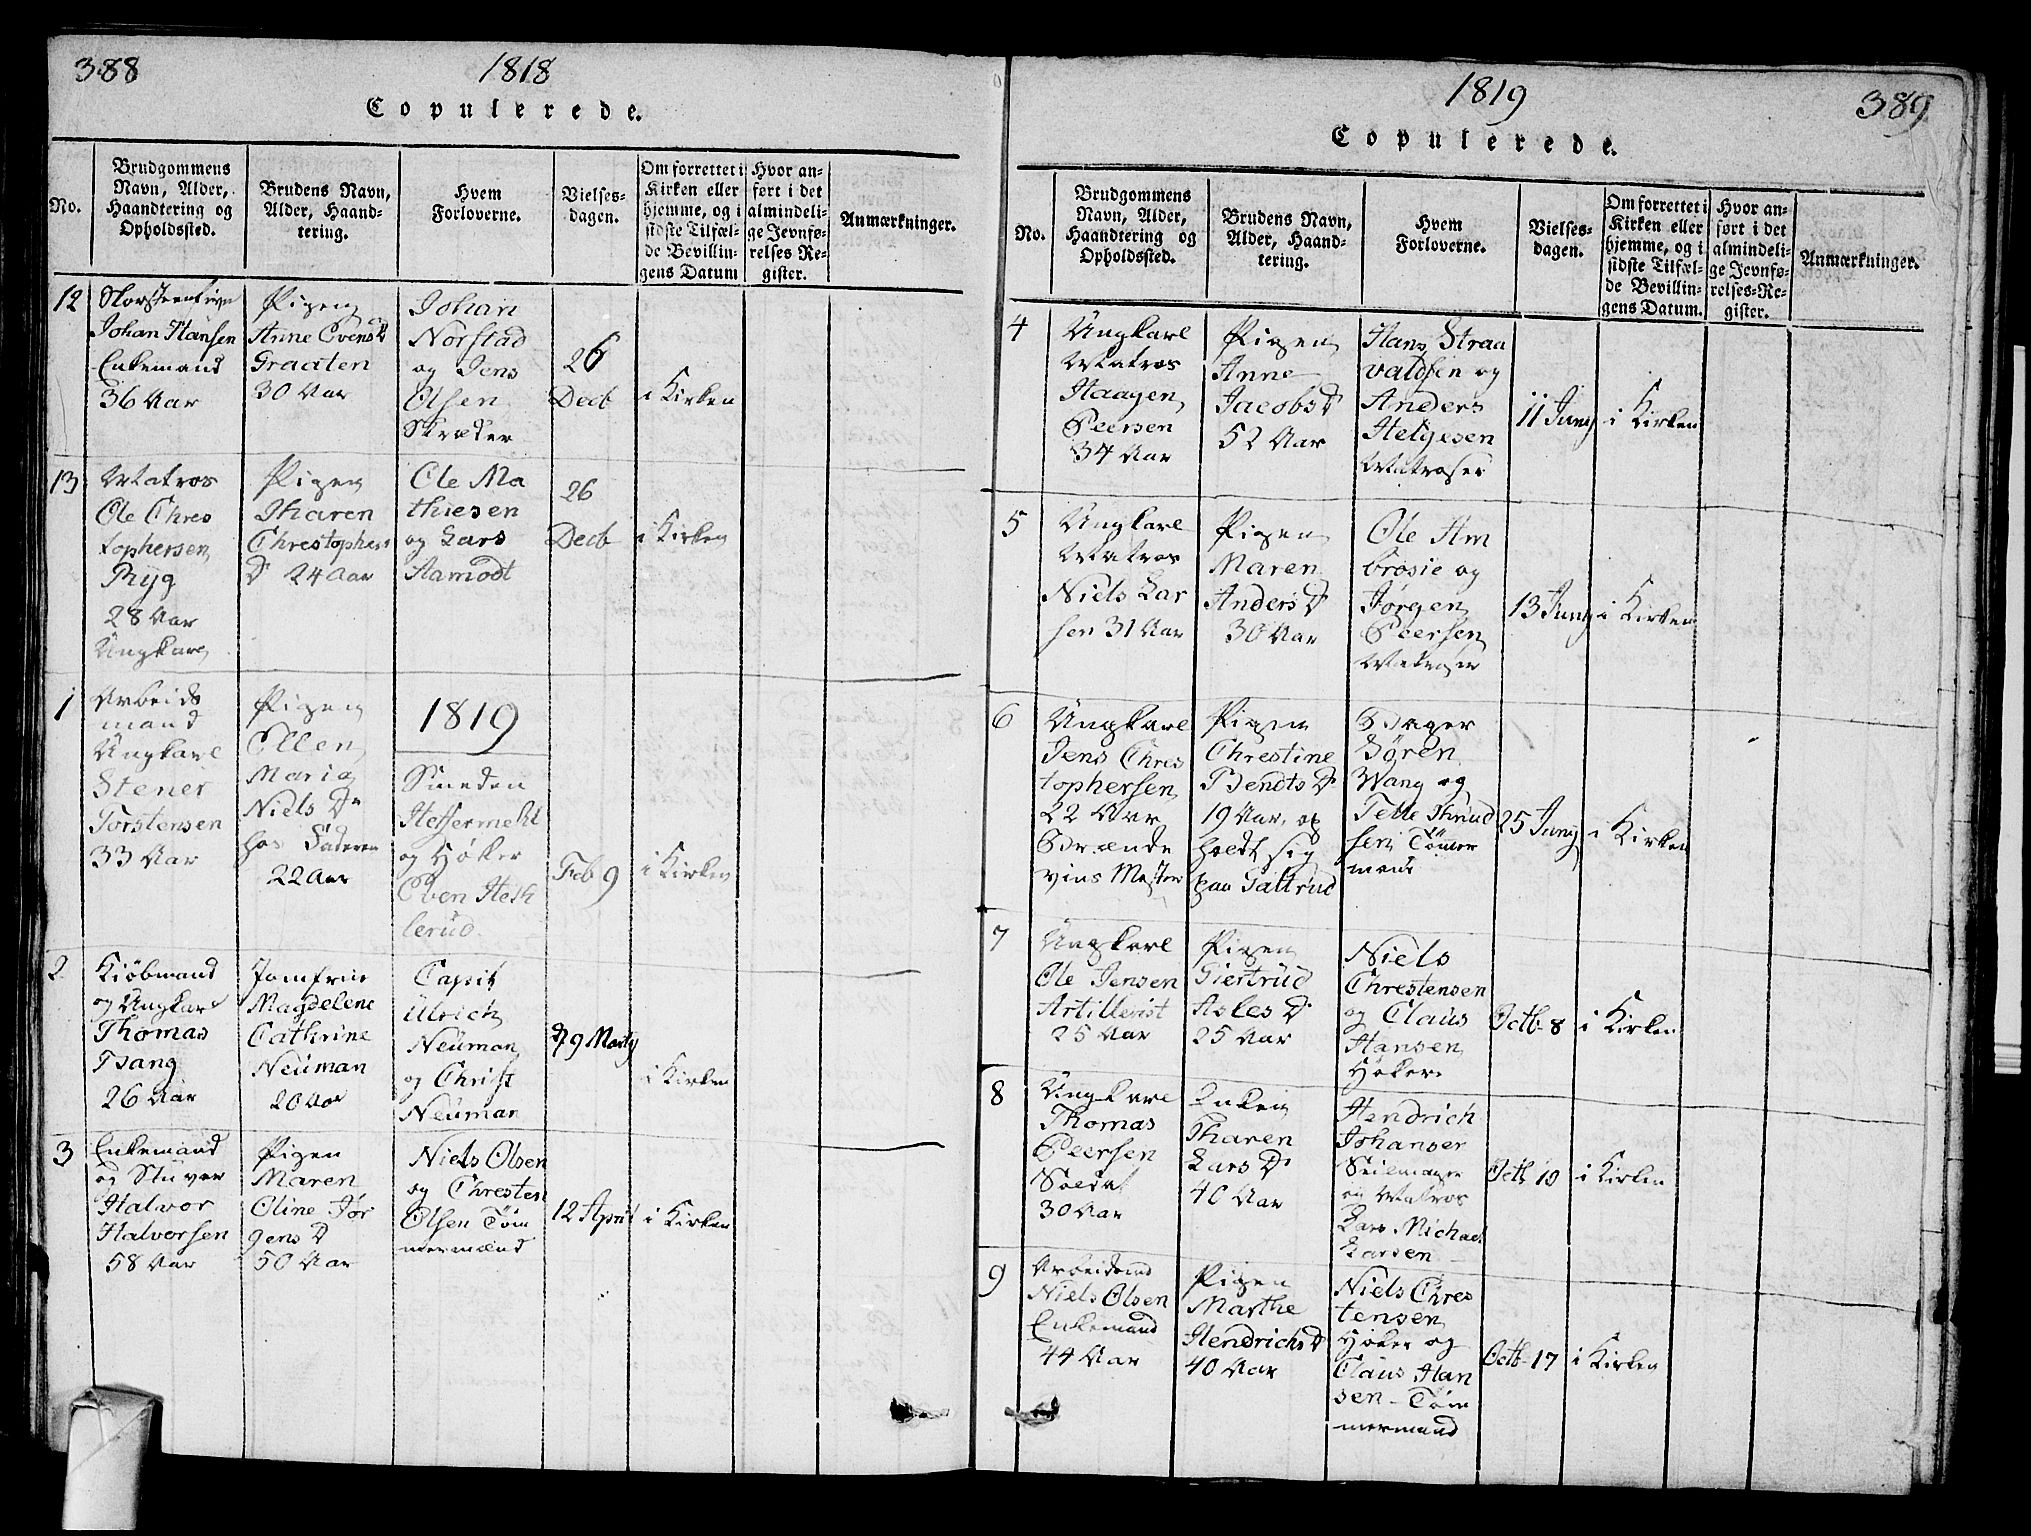 388
1818
Copulerede.
No.
Brudgommens
Navn, Alder,
Haandtering og
Opholdssted.
Brudens Navn,
Alder, Haand-
tering.
Hvem
Forloverne.
Vielses-
dagen.
Om forrettet i
Kirken eller
hjemme, og i
sidste Tilfæl-
de Bevillin-
gens Datum
Hvor an-
ført i det
almindeli-
ge Jevnfø-
relses Re-
gister.
Anmærkninger.
12
Johan Hansen
Enkemand
36 Aar
Pigen
Anne EvensD
Graaten
30 Aar
Johan
Norstad
og Jens
Olsen
Skræder
26
Decb
i Kirken
13
Matros
Ole Chres
tophersen
Ryg
28 Aar
Ungkarl
Pigen
Tharen
Christophers
D 24 Aar
Ole Ma
thiesen
og Lars
Aamodt
26
Decb
i Kirken
1
Arbeids
mand
Ungkarl
Stener
Torstensen
33 Aar
Pigen
Ellen
Maria
Niels Dr
hos Faderen
22 Aar
1819
Smeden
Heffermehl
og Høker
Even Heth
lerud
Feb 9
i Kirken
2
Kiøbmand
og Ungkarl
Thomas
Tsang
26 Aar
Jomfrue
Magdelene
Cathrine
Neuman
20 Aar
Capit
Ulrich
Neuman
og Christ
Neuman
9 Marty
i Kirken
3
Enkemand
og Stuver
Halvor
Halvorsen
58 Aar
Pigen
Maren
Oline Jør
gens D
50 Aar
Niels Olsen
og Chresten
Olsen Tøm
mermænd
12 April
i Kirken
1819
389
Copulerede.
No.
Brudgommens
Navn, Alder,
Haandtering og
Opholdssted.
Brudens Navn,
Alder, Haand-
tering.
Hvem
Forloverne.
Vielses-
dagen.
Om forrettet i
Kirken eller
hjemme, og i
sidste Tilfæl-
de Bevillin-
gens Datum.
Hvor an-
ført i det
almindeli-
ge Jevnfø-
relses-Re-
gister.
Anmærkninger.
4
Ungkarl
Matros
Haagen
Peersen
34 Aar
Pigen
Anne
JacobsD
52 Aar
Hans Straa
valdsen og
Anders
Helgesen
Matroser
11 Juny
i Kirken
5
Ungkarl
Matros
Niels Lar
sen 31 Aar
Pigen
Maren
Anders D
30 Aar
Ole Am
brosie og
Jørgen
Peersen
Matroser
13 Juny
i Kirken
6
Ungkarl
Jens Chris
tophersen
22 Aar
Brænde
vins Mester
Pigen
Chrestine
Bendts D
19 Aar, op
holdt sig
paa Galtrud
Bager
Søren
Wang og
Telle Thrud
sen Tømer
mend
25 Juny
i Kirken
7
Ungkarl
Ole Jensen
Artillerist
25 Aar
Pigen
Giertrud
Asles D
25 Aar
Niels
Chrestensen
og Claus
Hansen
Høker
Octb 8
i Kirken
8
Ungkarl
Thomas
Peersen
Soldat
30 Aar
Enken
Tharen
Lars D
40 Aar
Hendrich
Johanser
Seilmager
og Matros
Lars Michael
Larsen
Octb 10
i Kirken
9
Arbeidsmd
Niels Olsen
Enkemand
44 Aar
Pigen
Marthe
HendrichsD
40 Aar
Niels Chres
tensen
Høker og
Claus Han
sen Tøm
mermand
Octb 17
i Kirken